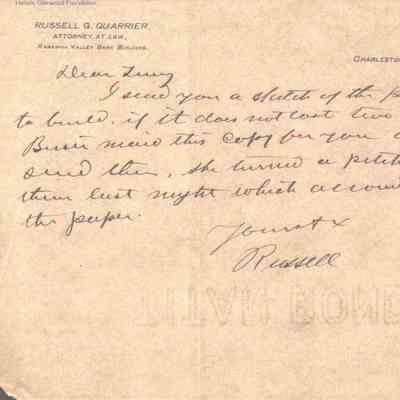 RUSSELL G. QUARRIER,
ATTORNEY AT LAW,
KANAWHA VALLEY BANK BUILDING.
CHARLESTON
Dear
I send you a sketch of the
to build, if it does not cost two
made this copy for you
send then, she turned a pitch
them last night which accoun
the paper.
Yours &
Russell